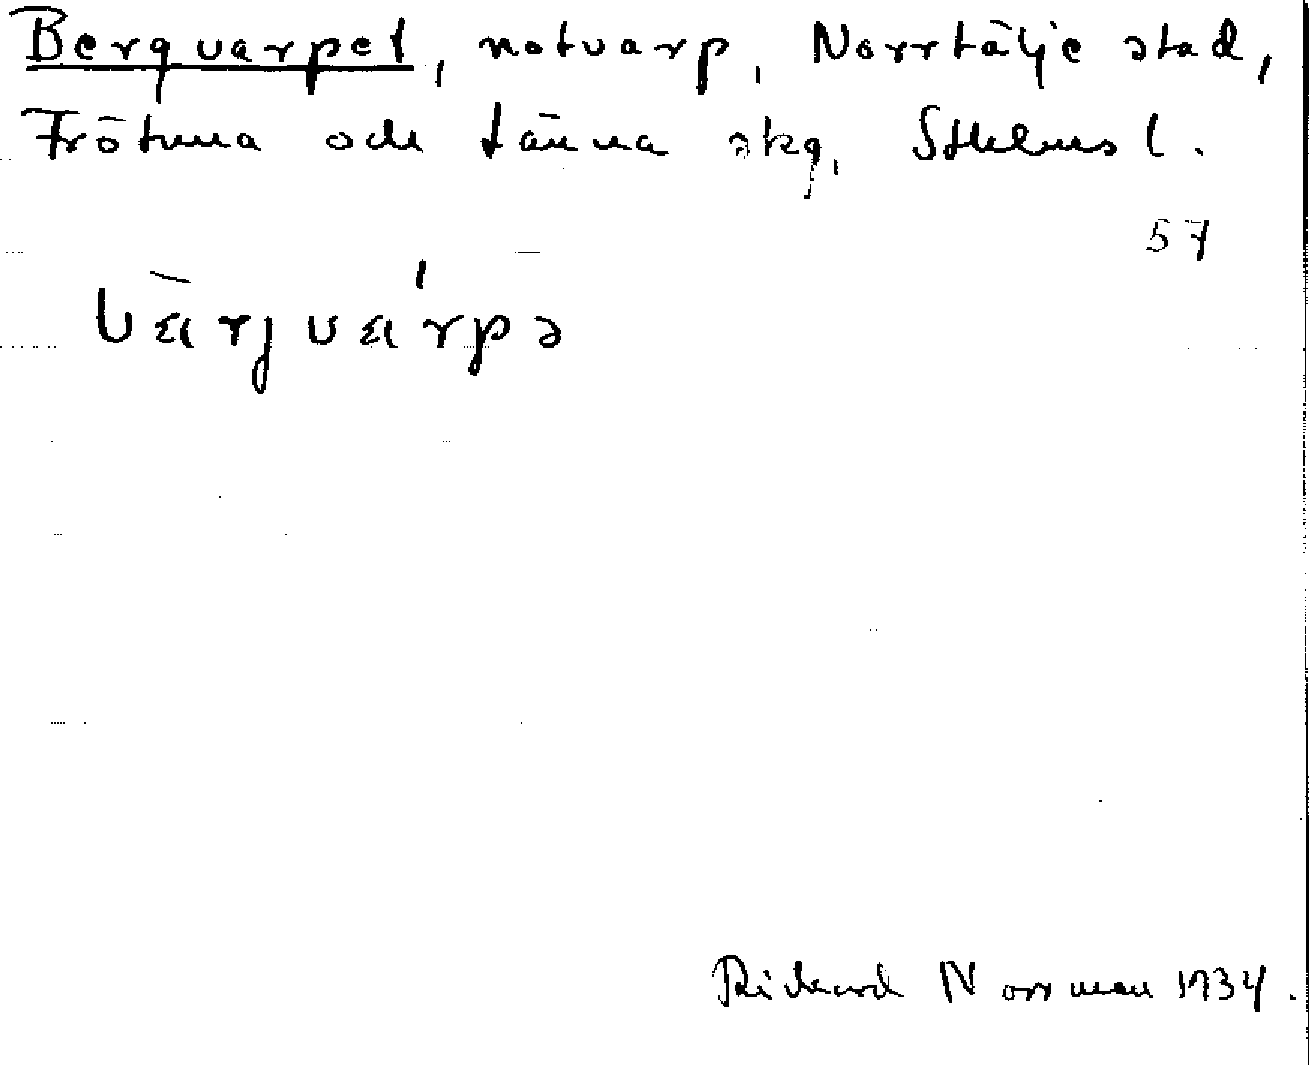 Bergvarpet, notvarp, Norrtälje stad,
Frötuna och Länna skg, Sthlms l.
57
bärjvarpə
Rickard Norrman 1934.